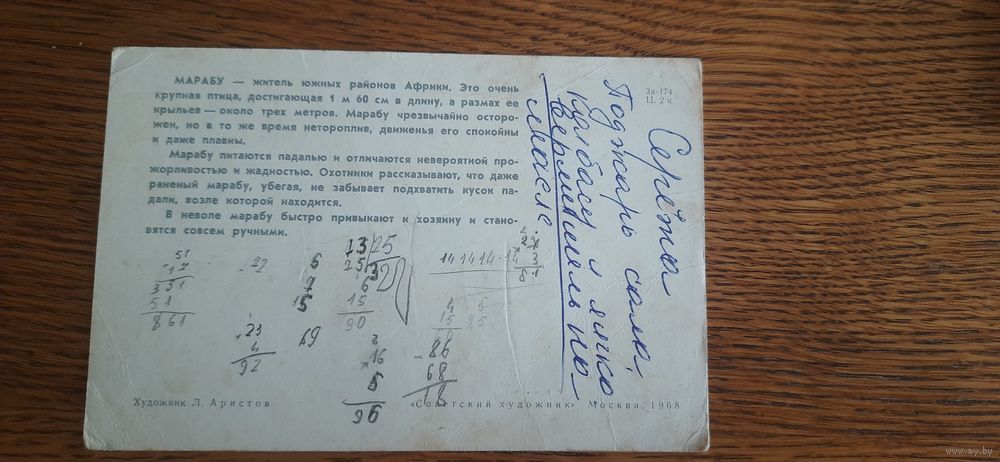 МАРАБУ — житель южных районов Африки. Это очень
крупная птица, достигающая 1 м 60 см в длину, а размах ее
крыльев — около трех метров. Марабу чрезвычайно осторо-
жен, но в то же время нетороплив, движенья его спокойны
и даже плавны.
Марабу питаются падалью и отличаются невероятной про-
жорливостью и жадностью. Охотники рассказывают, что даже
раненый марабу, убегая, не забывает подхватить кусок па-
дали, возле которой находится.
В неволе марабу быстро привыкают к хозяину и стано-
вятся совсем ручными.
За-174
Ц. 2 к.
Серёжа
Поджарь сало,
колбасы и яичко
вермишель на
масле.
51
17
351
51
861
23
4
92
69
6
15
90
16
6
96
14 14 14 14
3
81
86
68
18
Художник Л. Аристов
«Советский художник». Москва. 1968
www.ay.by